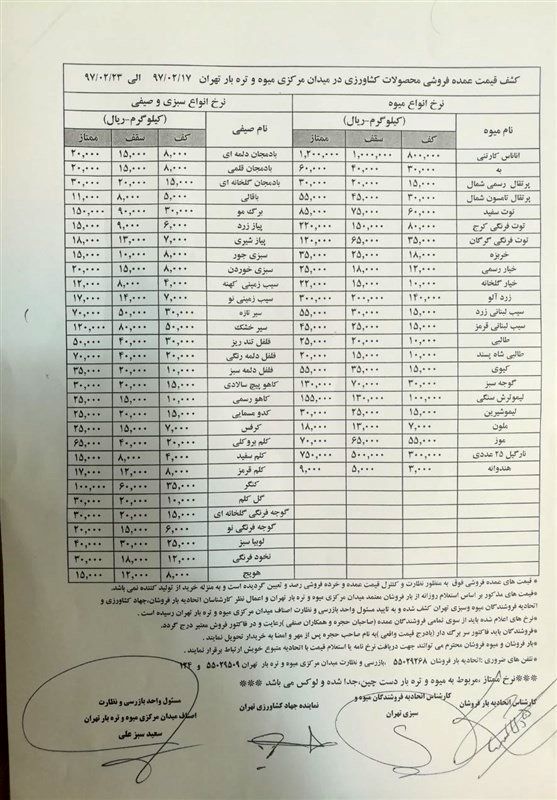 کشف قیمت عمده فروشی محصولات کشاورزی در میدان مرکزی میوه و تره بار تهران ۹۷/۰۲/۱۷ الی ۹۷/۰۲/۲۳
نرخ انواع میوه
نام میوه (کیلوگرم-ریال)
کف سقف ممتاز
آناناس کارتنی ۸۰۰,۰۰۰ ۱,۰۰۰,۰۰۰ ۱,۲۰۰,۰۰۰
به ۳۰,۰۰۰ ۴۰,۰۰۰ ۶۰,۰۰۰
پرتقال رسمی شمال ۱۵,۰۰۰ ۲۰,۰۰۰ ۳۰,۰۰۰
پرتقال تامسون شمال ۳۰,۰۰۰ ۴۵,۰۰۰ ۵۵,۰۰۰
توت سفید ۶۰,۰۰۰ ۷۵,۰۰۰ ۸۵,۰۰۰
توت فرنگی کرج ۸۰,۰۰۰ ۱۵۰,۰۰۰ ۲۲۰,۰۰۰
توت فرنگی گرگان ۳۵,۰۰۰ ۶۵,۰۰۰ ۱۲۰,۰۰۰
خربزه ۱۸,۰۰۰ ۲۵,۰۰۰ ۳۵,۰۰۰
خیار رسمی ۱۲,۰۰۰ ۱۸,۰۰۰ ۲۵,۰۰۰
خیار گلخانه ۱۰,۰۰۰ ۱۵,۰۰۰ ۲۲,۰۰۰
زرد آلو ۱۴۰,۰۰۰ ۲۰۰,۰۰۰ ۳۰۰,۰۰۰
سیب لبنانی زرد ۱۵,۰۰۰ ۳۰,۰۰۰ ۵۵,۰۰۰
سیب لبنانی قرمز ۱۵,۰۰۰ ۲۵,۰۰۰ ۴۵,۰۰۰
طالبی ۱۰,۰۰۰ ۲۰,۰۰۰ ۲۵,۰۰۰
طالبی شاه پسند ۱۰,۰۰۰ ۱۵,۰۰۰ ۲۰,۰۰۰
کیوی ۱۵,۰۰۰ ۳۵,۰۰۰ ۵۵,۰۰۰
گوجه سبز ۳۰,۰۰۰ ۷۰,۰۰۰ ۱۳۰,۰۰۰
لیموترش سنگی ۱۰۰,۰۰۰ ۱۳۰,۰۰۰ ۱۵۵,۰۰۰
لیموشیرین ۱۵,۰۰۰ ۲۵,۰۰۰ ۳۰,۰۰۰
ملون ۷,۰۰۰ ۱۳,۰۰۰ ۱۸,۰۰۰
موز ۵۵,۰۰۰ ۶۵,۰۰۰ ۷۰,۰۰۰
نارگیل ۲۵ عددی ۳۰۰,۰۰۰ ۵۰۰,۰۰۰ ۷۵۰,۰۰۰
هندوانه ۳,۰۰۰ ۵,۰۰۰ ۹,۰۰۰
نرخ انواع سبزی و صیفی
نام صیفی (کیلوگرم-ریال)
کف سقف ممتاز
بادمجان دلمه ای ۸,۰۰۰ ۱۵,۰۰۰ ۲۰,۰۰۰
بادمجان قلمی ۸,۰۰۰ ۱۵,۰۰۰ ۲۰,۰۰۰
بادمجان گلخانه ای ۱۵,۰۰۰ ۲۰,۰۰۰ ۳۰,۰۰۰
باقالی ۵,۰۰۰ ۸,۰۰۰ ۱۱,۰۰۰
برگ مو ۳۰,۰۰۰ ۹۰,۰۰۰ ۱۵۰,۰۰۰
پیاز زرد ۶,۰۰۰ ۹,۰۰۰ ۱۵,۰۰۰
پیاز شیری ۷,۰۰۰ ۱۳,۰۰۰ ۱۸,۰۰۰
سبزی جور ۸,۰۰۰ ۱۰,۰۰۰ ۱۵,۰۰۰
سبزی خوردن ۸,۰۰۰ ۱۵,۰۰۰ ۲۰,۰۰۰
سیب زمینی کهنه ۴,۰۰۰ ۸,۰۰۰ ۱۲,۰۰۰
سیب زمینی نو ۷,۰۰۰ ۱۴,۰۰۰ ۱۷,۰۰۰
سیر تازه ۳۰,۰۰۰ ۵۰,۰۰۰ ۷۰,۰۰۰
سیر خشک ۵۰,۰۰۰ ۸۰,۰۰۰ ۱۲۰,۰۰۰
فلفل تند ریز ۳۰,۰۰۰ ۴۰,۰۰۰ ۵۰,۰۰۰
فلفل دلمه رنگی ۲۰,۰۰۰ ۴۰,۰۰۰ ۷۰,۰۰۰
فلفل دلمه سبز ۱۰,۰۰۰ ۲۰,۰۰۰ ۳۵,۰۰۰
کاهو پیچ سالادی ۱۵,۰۰۰ ۲۰,۰۰۰ ۳۰,۰۰۰
کاهو رسمی ۱۰,۰۰۰ ۱۵,۰۰۰ ۲۵,۰۰۰
کدو مسمایی ۱۵,۰۰۰ ۲۰,۰۰۰ ۲۵,۰۰۰
کرفس ۷,۰۰۰ ۱۵,۰۰۰ ۲۵,۰۰۰
کلم بروکلی ۲۰,۰۰۰ ۴۰,۰۰۰ ۶۵,۰۰۰
کلم سفید ۴,۰۰۰ ۸,۰۰۰ ۱۵,۰۰۰
کلم قرمز ۸,۰۰۰ ۱۲,۰۰۰ ۱۷,۰۰۰
کنگر ۳۵,۰۰۰ ۶۰,۰۰۰ ۱۰۰,۰۰۰
گل کلم ۱۰,۰۰۰ ۲۰,۰۰۰ ۳۰,۰۰۰
گوجه فرنگی گلخانه ای ۱۵,۰۰۰ ۲۰,۰۰۰ ۳۰,۰۰۰
گوجه فرنگی نو ۶,۰۰۰ ۱۵,۰۰۰ ۲۰,۰۰۰
لوبیا سبز ۲۵,۰۰۰ ۳۰,۰۰۰ ۴۰,۰۰۰
نخود فرنگی ۱۲,۰۰۰ ۱۸,۰۰۰ ۳۰,۰۰۰
هویج ۸,۰۰۰ ۱۲,۰۰۰ ۱۵,۰۰۰
*قیمت های عمده فروشی فوق به منظور نظارت و کنترل قیمت عمده و خرده فروشی رصد و تعیین گردیده است و به منزله خرید از تولید کننده نمی باشد.
*قیمت های مذکور بر اساس استعلام روزانه از بار فروشان معتمد میدان مرکزی میوه و تره بار تهران و اعمال نظر کارشناسان اتحادیه بار فروشان،جهاد کشاورزی و
اتحادیه فروشندگان میوه وسبزی تهران کشف شده و به تایید مسئول واحد بازرسی و نظارت اصناف میدان مرکزی میوه و تره بار تهران رسیده است .
*نرخ های اعلام شده باید از سوی تمامی فروشندگان عمده (صاحبان حجره و همکاران صنفی )رعایت و در فاکتور فروش معتبر درج گردد.
*فروشندگان باید فاکتور سر برگ دار (بادرج قیمت واقعی )به نام صاحب حجره پس از مهر و امضا به خریدار تحویل نمایند .
*بار فروشان و میوه فروشان محترم می توانند جهت دریافت نرخ نامه یا استعلام قیمت با اتحادیه متبوع خویش ارتباط برقرار نمایند .
*تلفن های ضروری :اتحادیه بار فروشان ۵۵۰۲۹۲۶۸ ،بازرسی و نظارت میدان مرکزی میوه و تره بار تهران ۵۵۰۲۹۵۰۹ و ۱۲۴
***نرخ ممتاز ,مربوط به میوه و تره بار دست چین،جدا شده و لوکس می باشد ***
کارشناس اتحادیه بار فروشان
کارشناس اتحادیه فروشندگان میوه و
سبزی تهران
نماینده جهاد کشاورزی تهران
مسئول واحد بازرسی و نظارت
اصناف میدان مرکزی میوه و تره بار تهران
سعید سبز علی